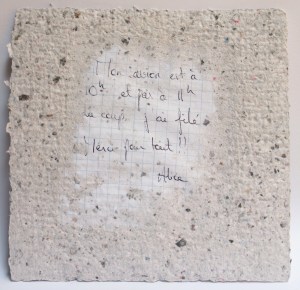 Mon avion est à
10h et pas à 11h
du coup j'ai filé
Merci pour tout !!
Alice